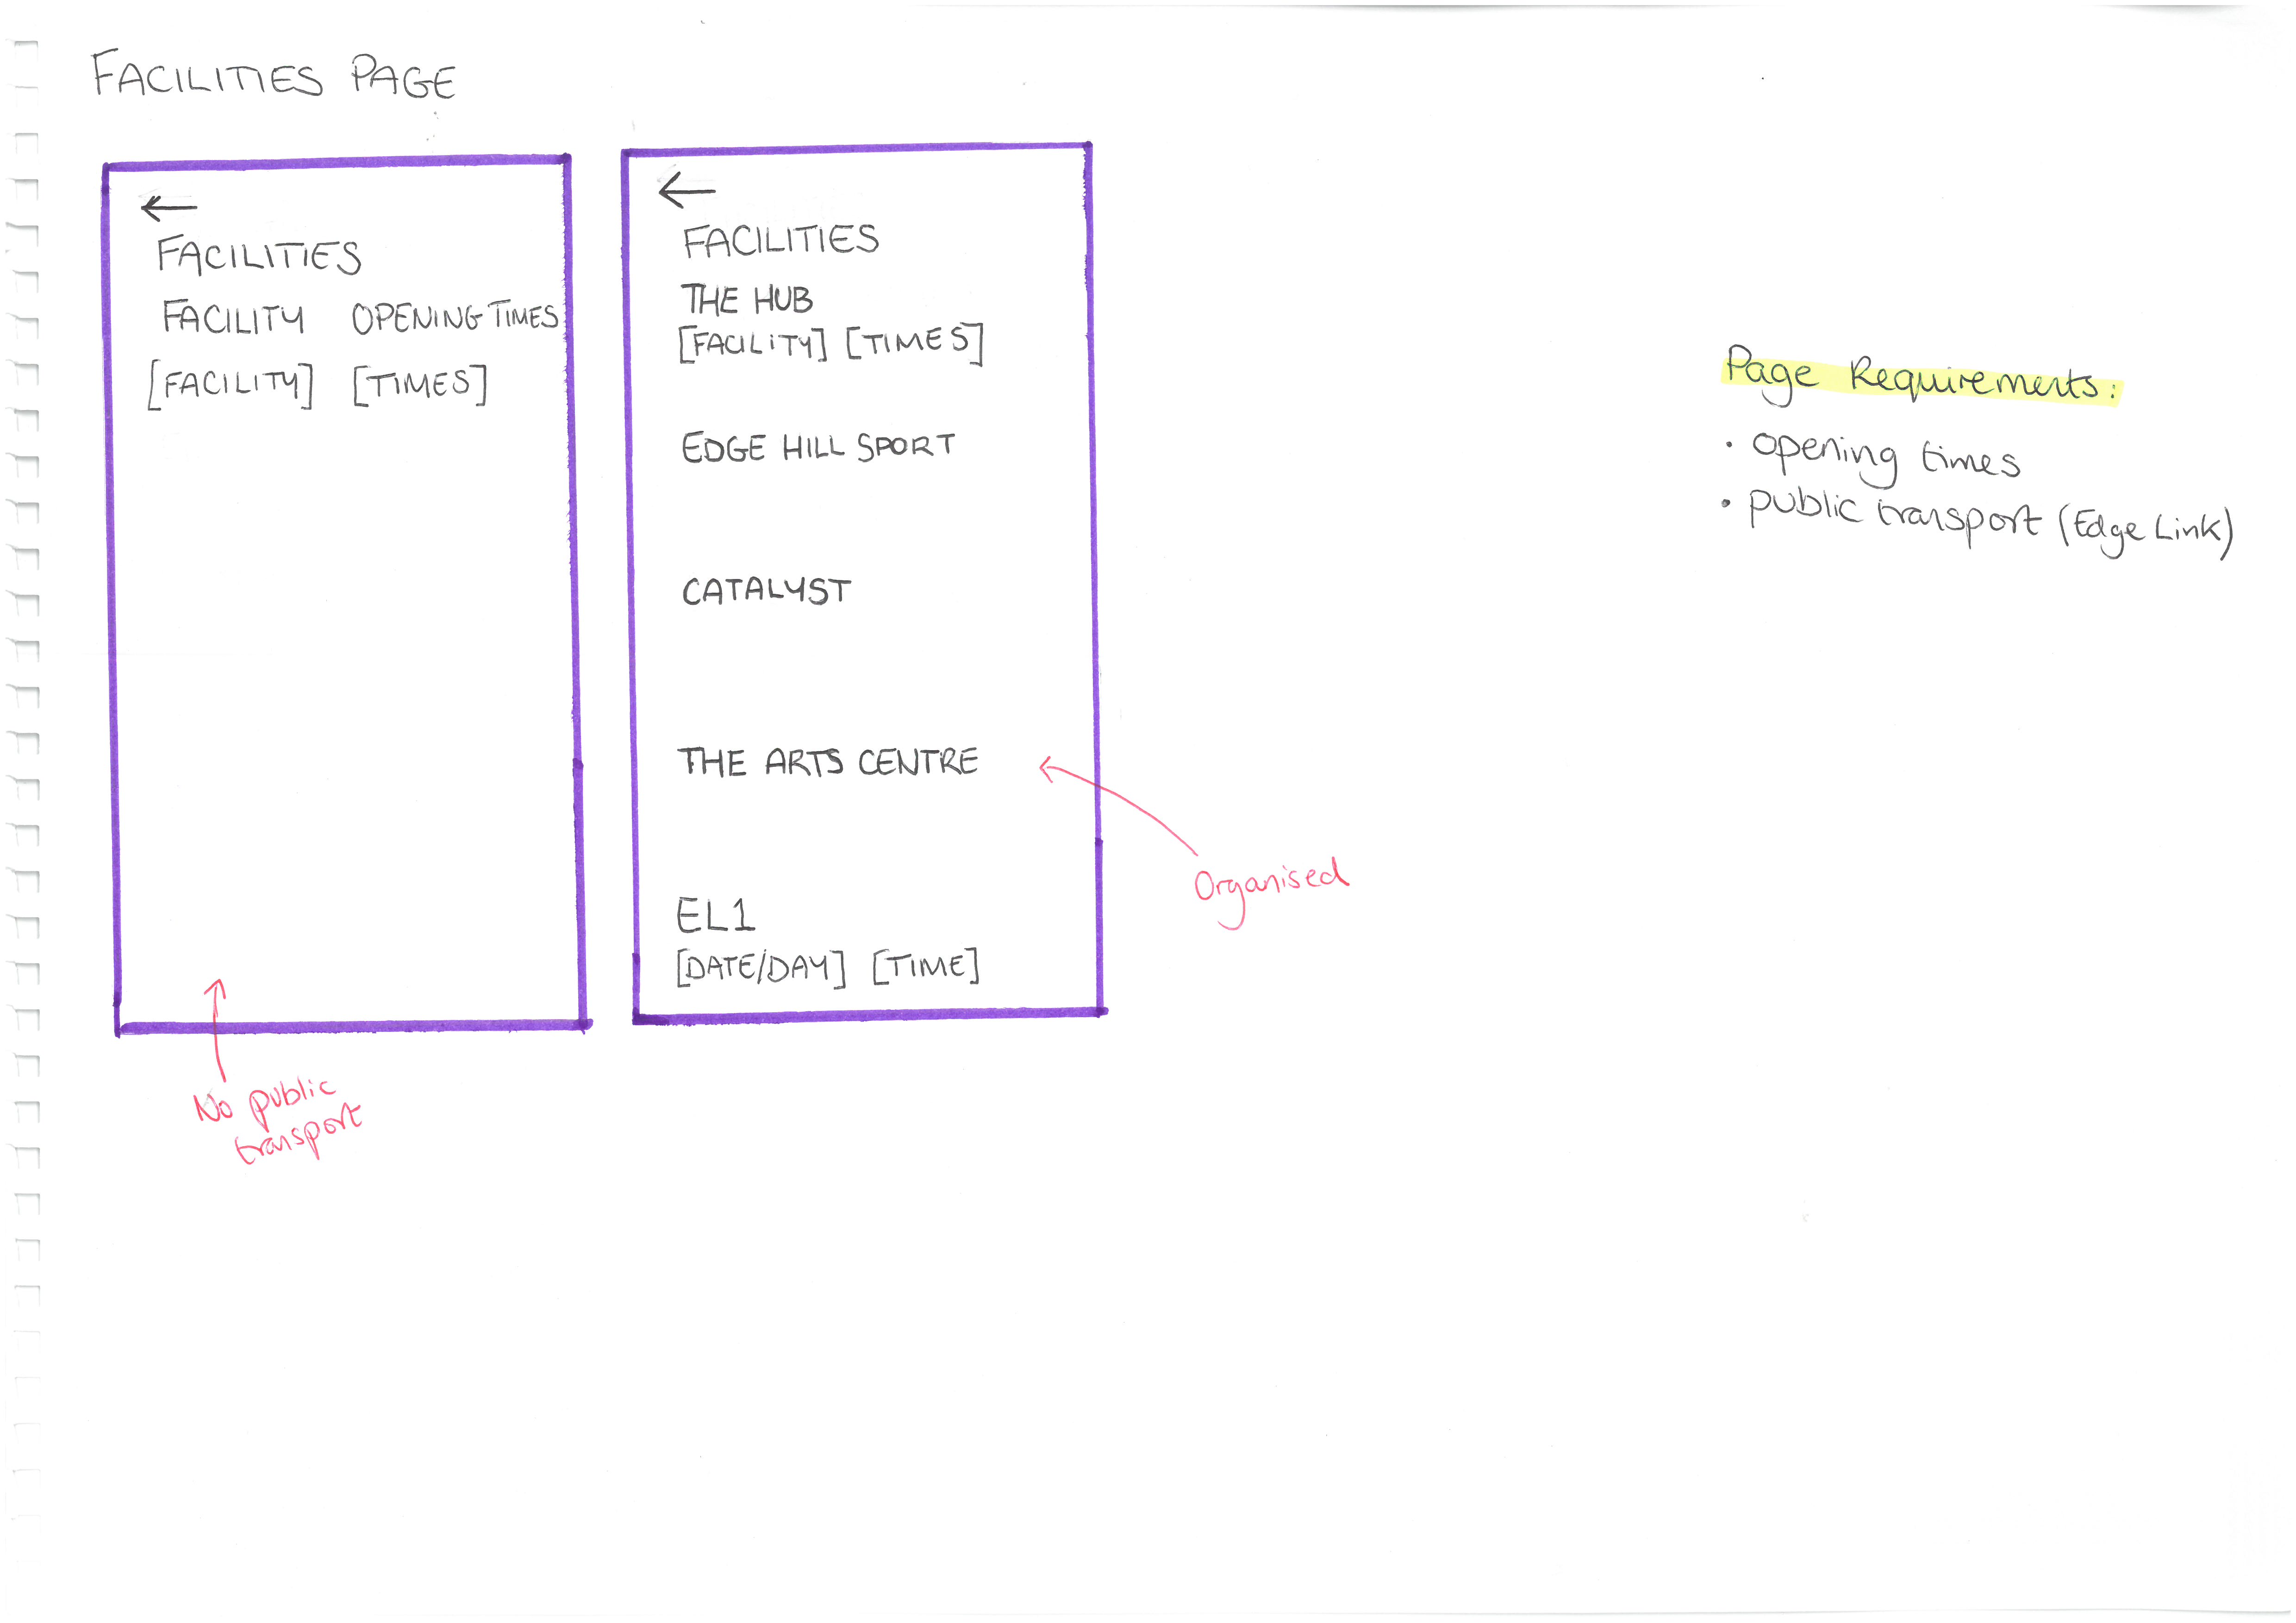 FACILITIES PAGE
←
FACILITIES
FACILITY OPENING TIMES
[FACILITY] [TIMES]
No public
transport
←
FACILITIES
THE HUB
[FACILITY] [TIMES]
EDGE HILL SPORT
CATALYST
THE ARTS CENTRE
EL1
[DATE/DAY] [TIME]
Organised
Page Requirements:
• opening times
• public transport (Edge Link)